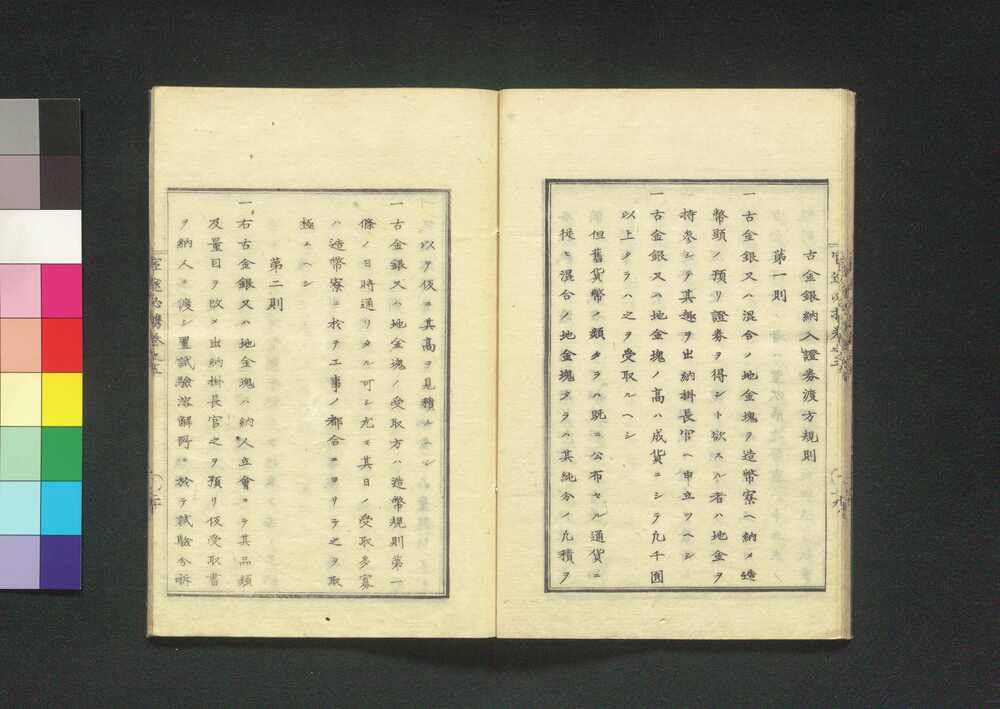 古金銀納入證券渡方規則
第一則
一古金銀又ハ混合ノ地金塊ヲ造幣寮ヘ納メ造
幣頭ノ預リ證券ヲ得ント欲スル者ハ地金ヲ
持参シテ其趣ヲ出納掛長官ヘ申立ツヘシ
一古金銀又ハ地金塊ノ高ハ成貨ニシテ凡千圓
以上タラハ之ヲ受取ルヘシ
但舊貨幣ノ類タラハ既ニ公布セル通貨ニ
従ヒ混合ノ地金塊タラハ其純分ノ凡積ヲ
以ヲ仮ニ其高ヲ見積ルヘシ
一古金銀又ハ地金塊ノ受取方ハ造幣規則第一
條ノ日時通リタル可シ尤モ其日ノ受取多寡
ハ造幣寮ニ於テ工事ノ都合ニヨリテ之ヲ取
極ムヘシ
第二則
一右古金銀又ハ地金塊ハ納人立會ニテ其品類
及量目ヲ改メ出納掛長官之ヲ預リ仮受取書
ヲ納人ニ渡シ置試驗溶解所ニ於テ試驗分析